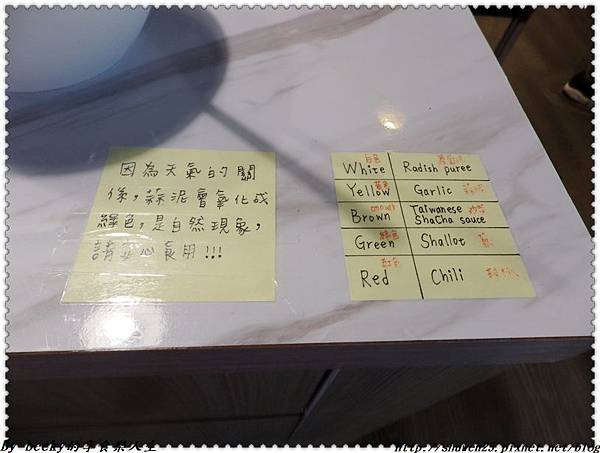 因為天氣的關
係，蒜泥會氧化成
綠色，是自然現象，
請安心食用!!!
白色
White Radish puree
黃色
Yellow Garlic
Brown Taiwanese
ShaCha sauce
綠色
Green Shallot
紅色
Red Chili
by becky的享食樂人生
http://shuwen25.pixnet.net/blog